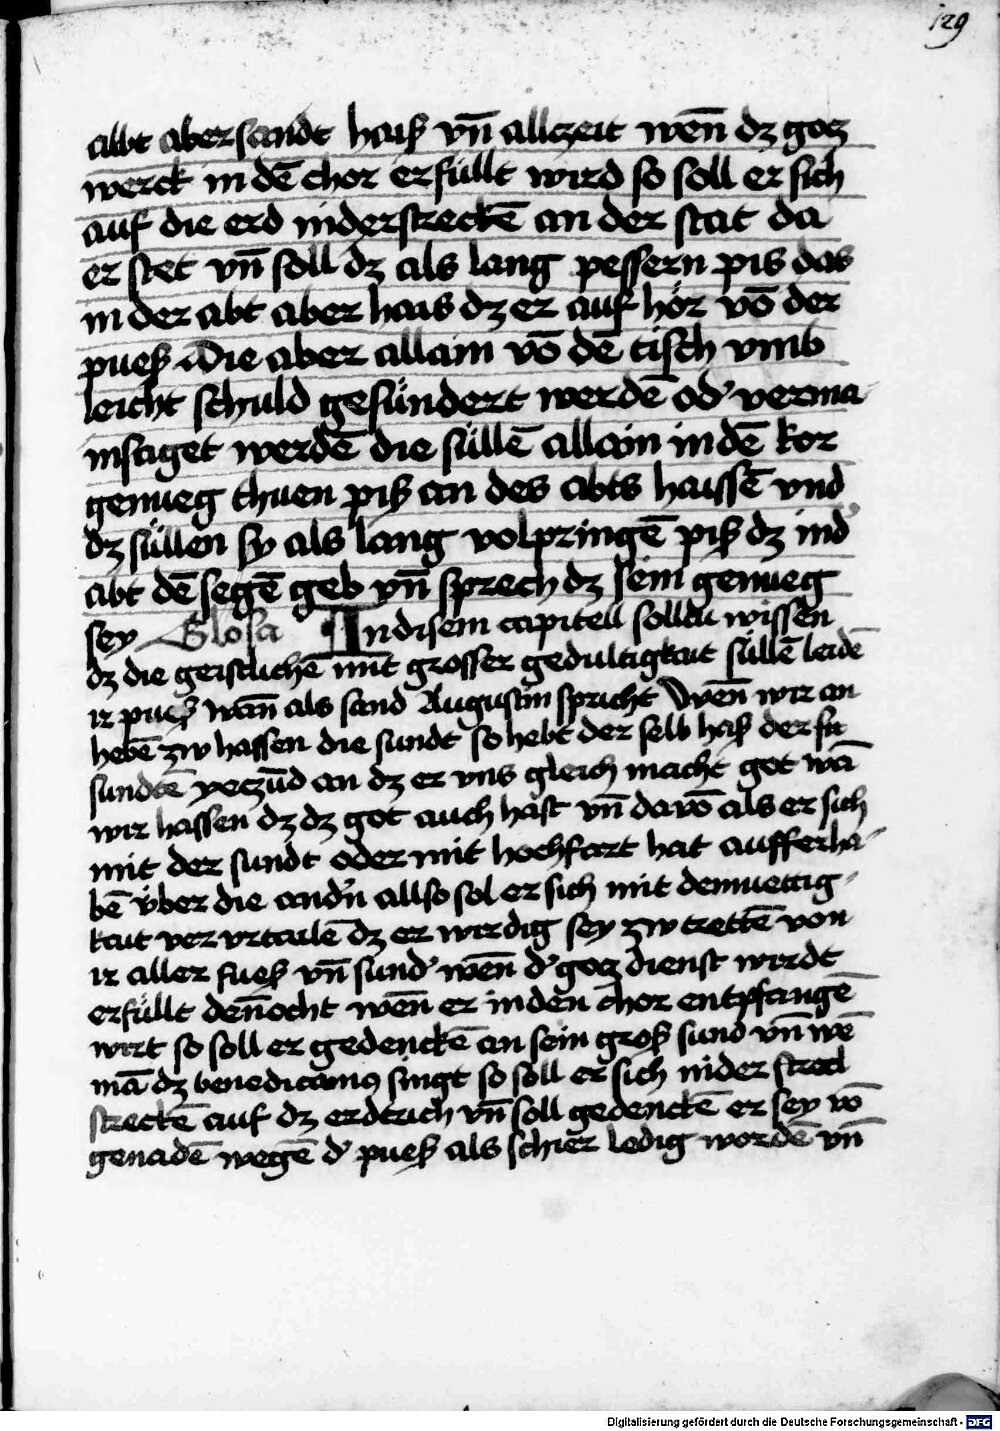 129
abbt abersandt haiß vn̄ allczeit wen̄ dz gotz
werck in dē chor erfüllt wird so soll er sich
auf die erd niderstreckē an der stat da
er stet vn̄ soll dz als lang pessern pis das
in der abt aber hais dz er auf hör vō der
pueß Die aber allain vō dē tisch vmb
leicht schuld gesündert werdē od' verma
insaget werdē die süllē allain in dē kor
genueg thuen piß an des abts haissē vnd
dz süllen sy als lang volpringē piß dz ind'
abt dē segē geb vn̄ sprech dz sein genueg
sey Glosa In disem capitell solldu wissen
dz die geistlichē mit grosser gedultigkait süllē leidē
ir pueß wan̄ als sand Augustin spricht Wen̄ wir an
hebē zw hassen die sundt so hebt der selb haß der
sundtē yeczūd an dz er vns gleich macht got wā
wir hassen dz dz got auch hast vn̄ davō als er sich
mit der sundt oder mit hochfart hat aufferha-
bē über die andn̄ allso sol er sich mit demuettig-
kait ver vrtailē dz er wirdig sey zw trettē von
ir aller fueß vn̄ sund' wen̄ d' gotz dienst wirdt
erfüllt den̄ocht wen̄ er in den chor entpfangē
wirt so soll er gedenckē an sein groß sund vn̄ wē
mā dz benedicamus singt so soll er sich nider
streckē auf dz erdtrich vn̄ soll gedenckē er sey vō
genadē wegē d' pueß als schier ledig wordē vn̄
Digitalisierung gefördert durch die Deutsche Forschungsgemeinschaft - DFG